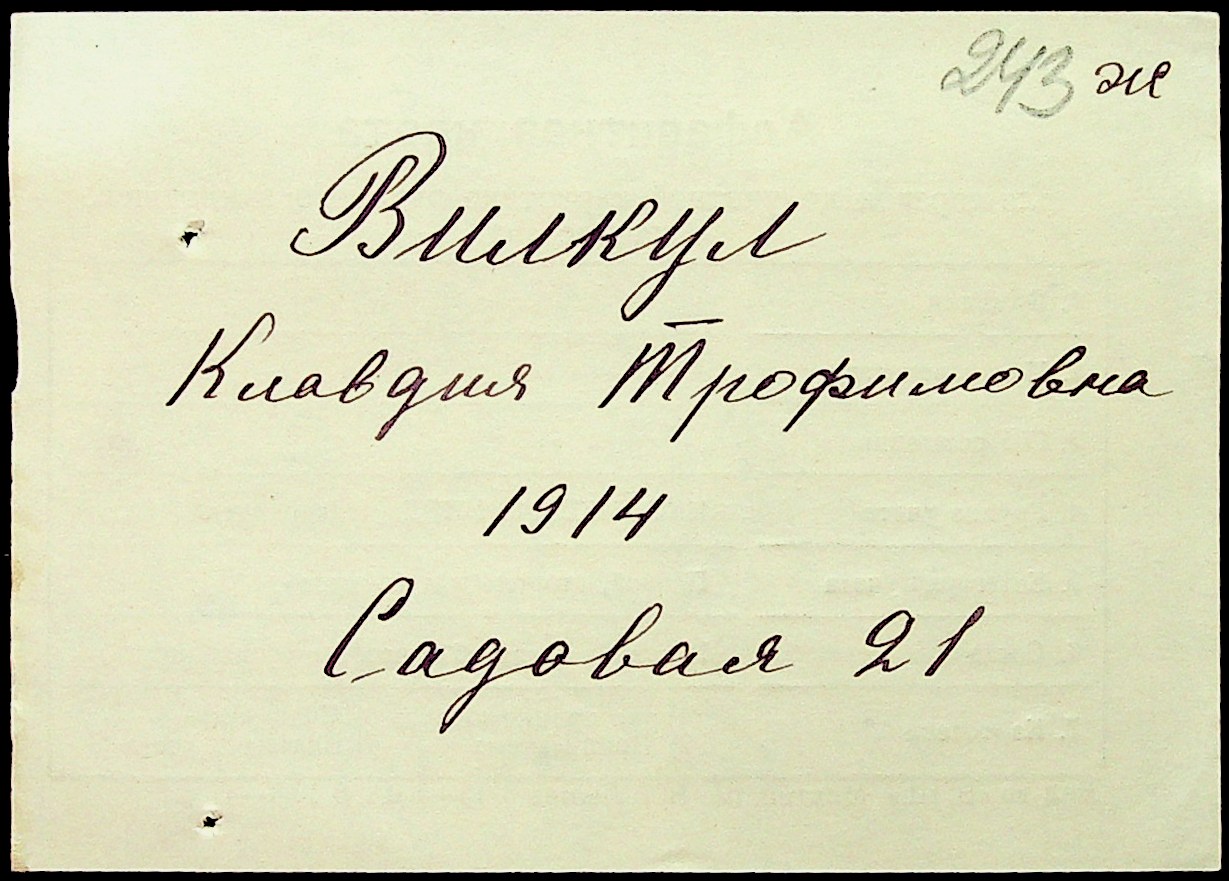 243 ж
Вилкул
Клавдия Трофимовна
1914
Садовая 21